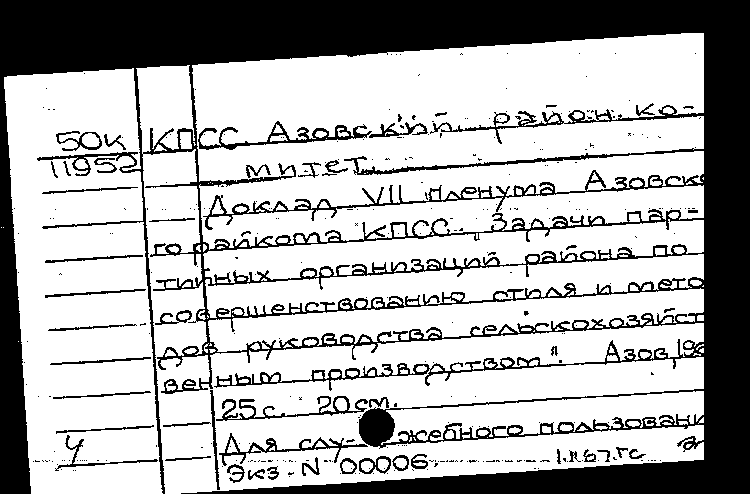 50к КПСС. Азовский район. ко-
11952 митет.
Доклад VII пленума Азовско
го райкома КПСС. „Задачи пар-
тийных организаций района по
совершенствованию стиля и мето
дов руководства сельскохозяйст
венным производством“. Азов, 19
25 с. 20 см.
Ч Для слу- жебного пользовани
Экз. N 00006.